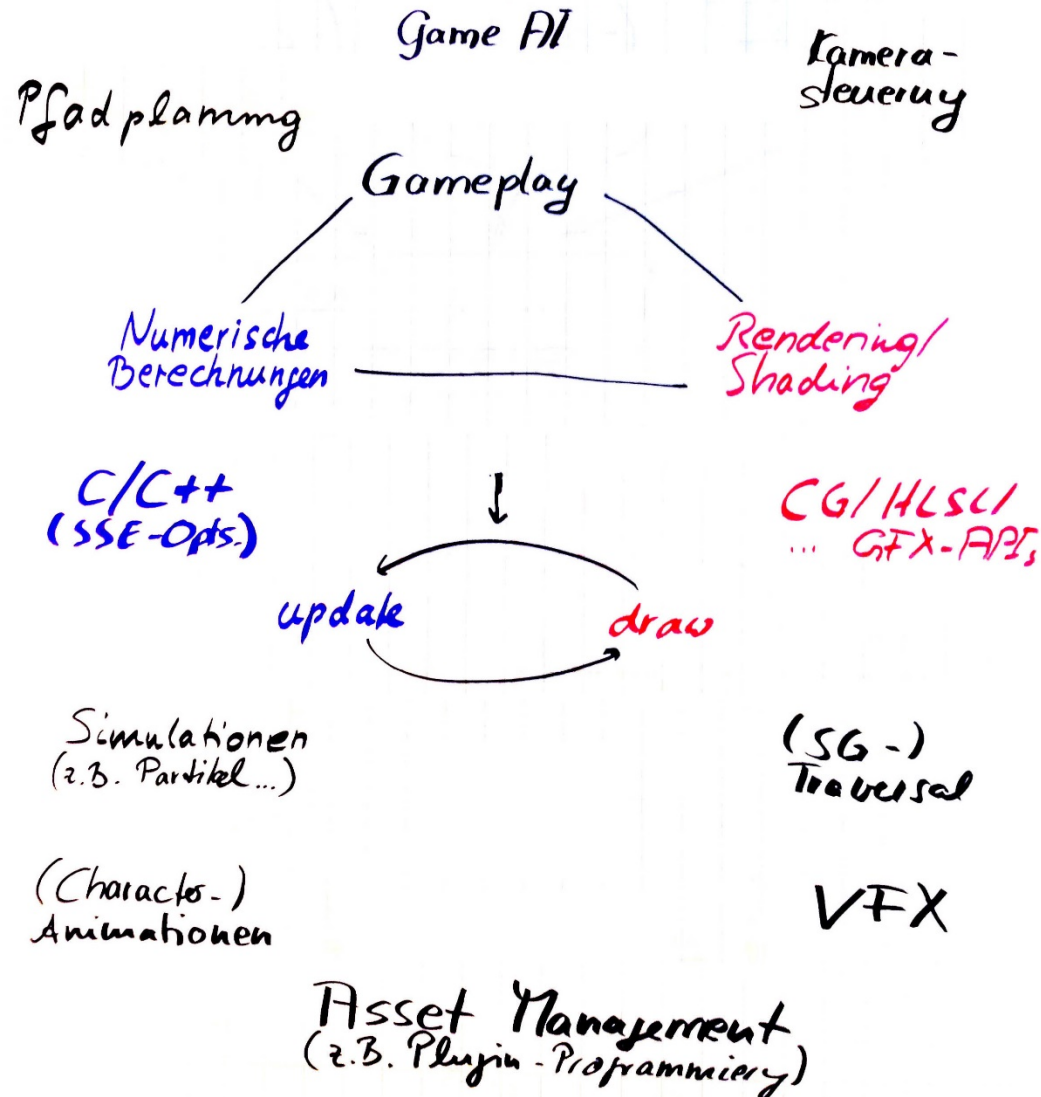 Game AI
Kamera-
steuerung
Pfadplanung
Gameplay
Numerische
Berechnungen
Rendering/
Shading
C/C++
(SSE-Opts.)
CG/HLSL/
... GFX-APIs
update
draw
Simulationen
(z.B. Partikel...)
(SG-)
Traversal
(Character-)
Animationen
VFX
Asset Management
(z.B. Plugin-Programmierung)